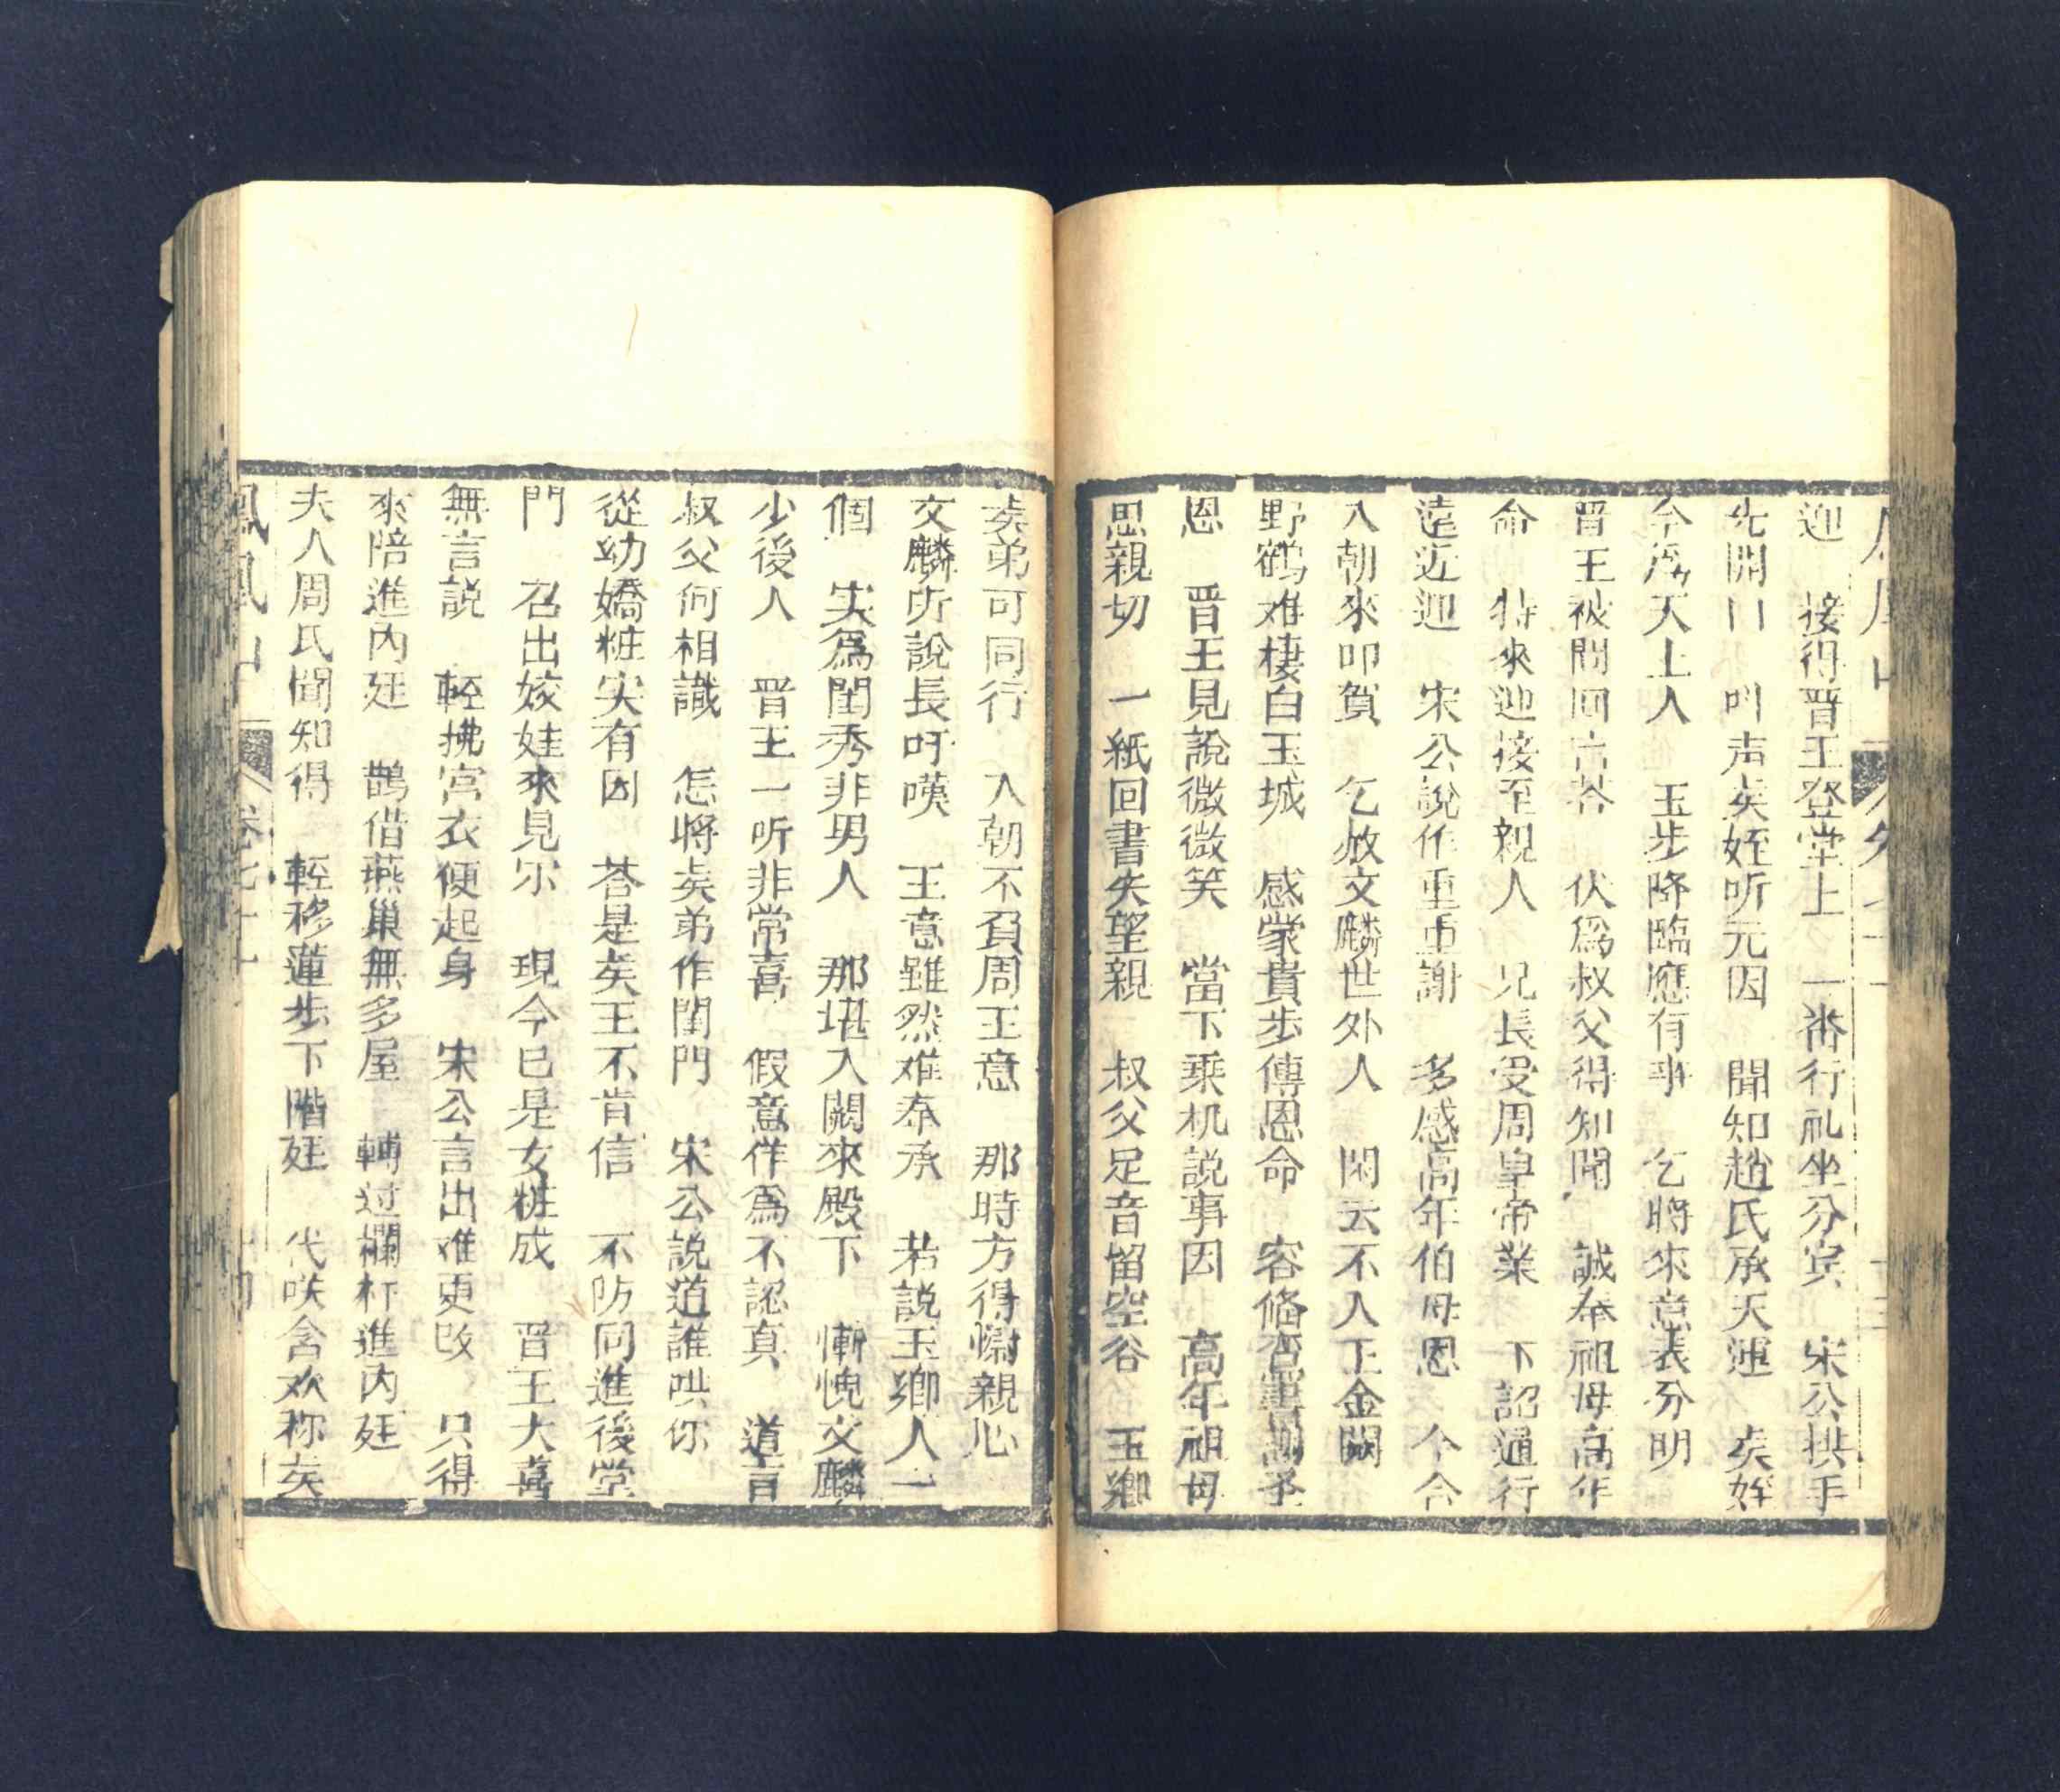 迎　接得晋王登堂上　一番行礼坐分宾　宋公拱手
先開口　叫声矦姪听元因　聞知趙氏承天運　矦姪
今為天上人　玉步降臨應有事　乞將來意表分明
晋王被問回言荅　伏為叔父得知聞　誠奉祖母高年
命　特來迎接至親人　兄長受周皇帝業　下詔通行
遠近迎　宋公說作重重謝　多感高年伯母恩　今合
入朝來叩賀　乞赦文麟世外人　閑云不入王金闕
野鶴难棲白玉城　感蒙貴步傳恩命　容俻
恩　晋王見說微微笑　當下乗机説事因　高年祖母
思親切　一紙回書失望親　叔父足音留空谷　玉鄉
矦弟可同行　入朝不負周王意　那時方得慰親心
文麟所説長吁嘆　王意雖然难奉承　若説玉鄉人一
個　实為閨秀非男人　那堪入闕來殿下　慚愧文麟
少後人　晋王一听非常喜　假意佯為不認真　道言
叔父何相識　怎將矦弟作閨門　宋公説道誰哄你
從幼嬌粧实有因　荅是矦王不肯信　不防同進後堂
門　召出姣娃來見宗　現今已是女粧成　晋王大喜
無言説　輕拂宮衣便起身　宋公言出难更改　只得
來陪進內廷　鵲借燕巢無多屋　轉过欄杆進內廷
夫人周氏聞知得　輕移蓮步下階廷　代咲含欢称矦
鳳凰山　卷七十　十四